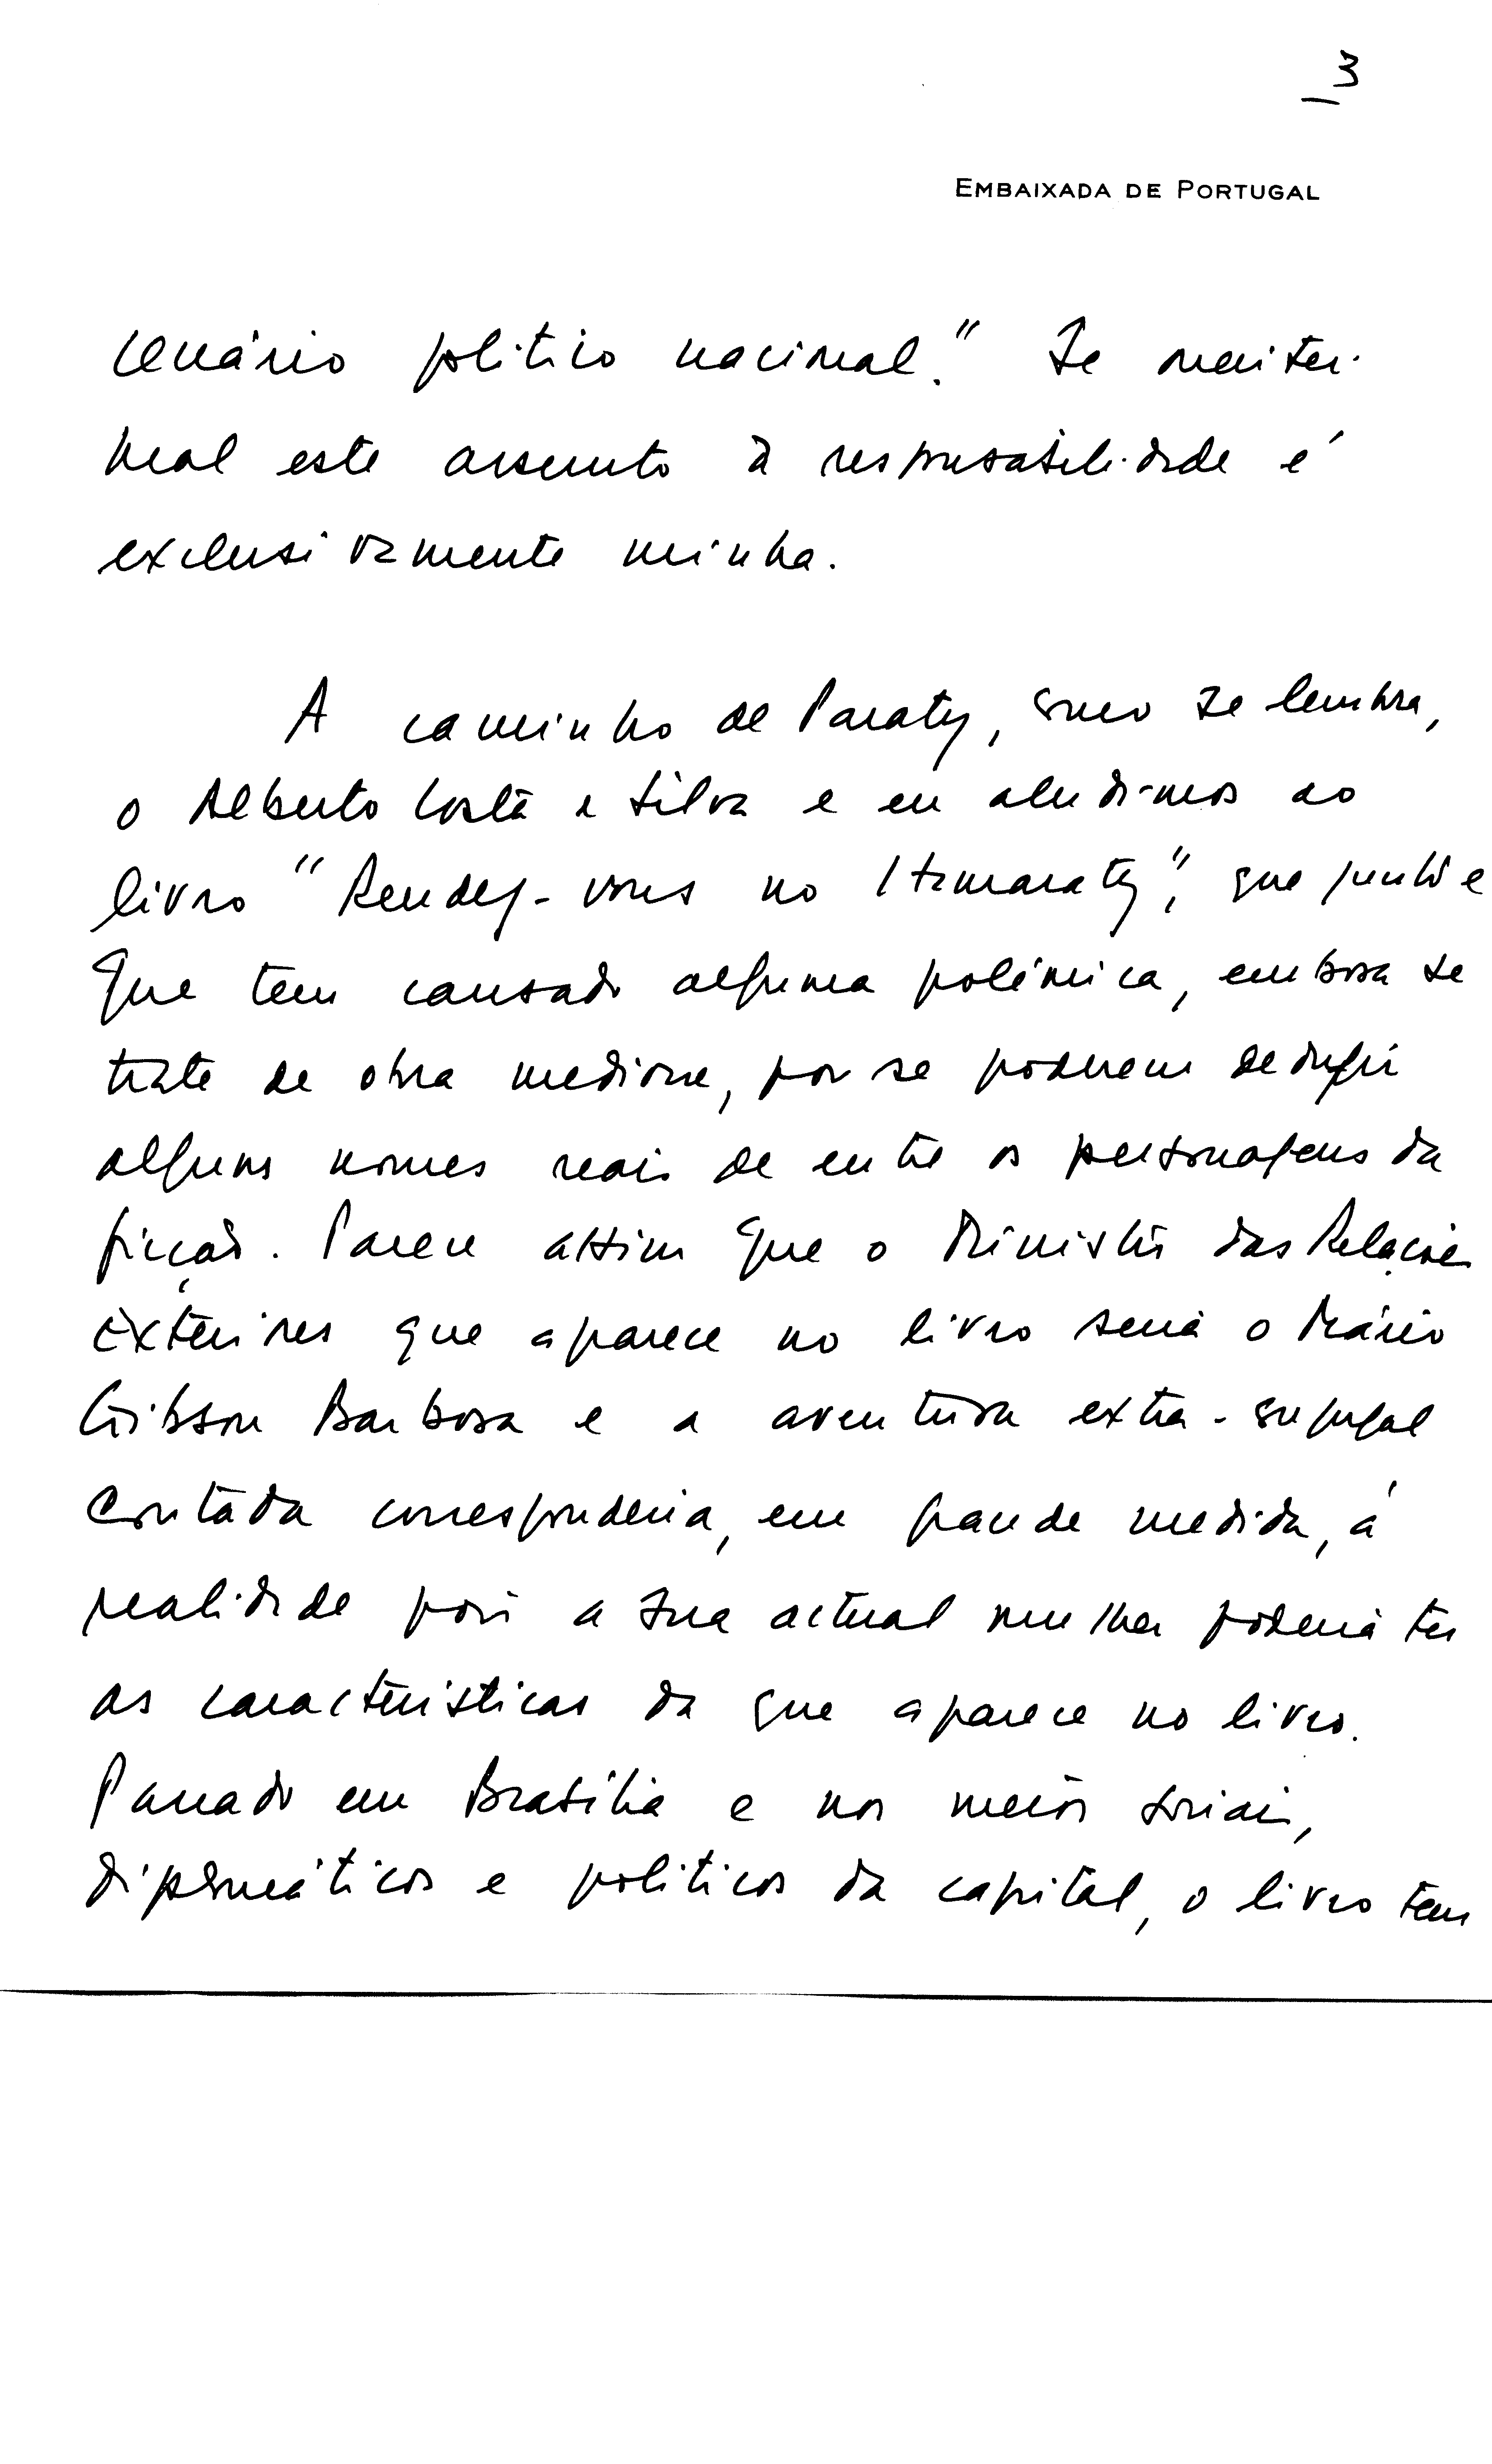 3
EMBAIXADA DE PORTUGAL
cenário politico nacional." Se
mal este assunto a responsabilidade é
exclusivamente minha.
A caminho de Paraty, como se lembra,
o Alberto Costa e Silva e eu aludimos ao
livro "Rendez-vous no Itamaraty", que junto e
que tem causado alguma polémica, embora se
trate de obra mediocre, por se poderem deduzir
alguns nomes reais de entre os personagens da
ficção. Parece assim que o Ministro das Relações
Exteriores que aparece no livro seria o Mário
Gibson Barbosa e a aventura extra-conjugal
contada corresponderia, em grande medida, á
realidade pois a sua actual mulher poderia ter
as características da que aparece no livro.
Passado em Brasília e nos meios sociais,
diplomáticos e politicos da capital, o livro tem